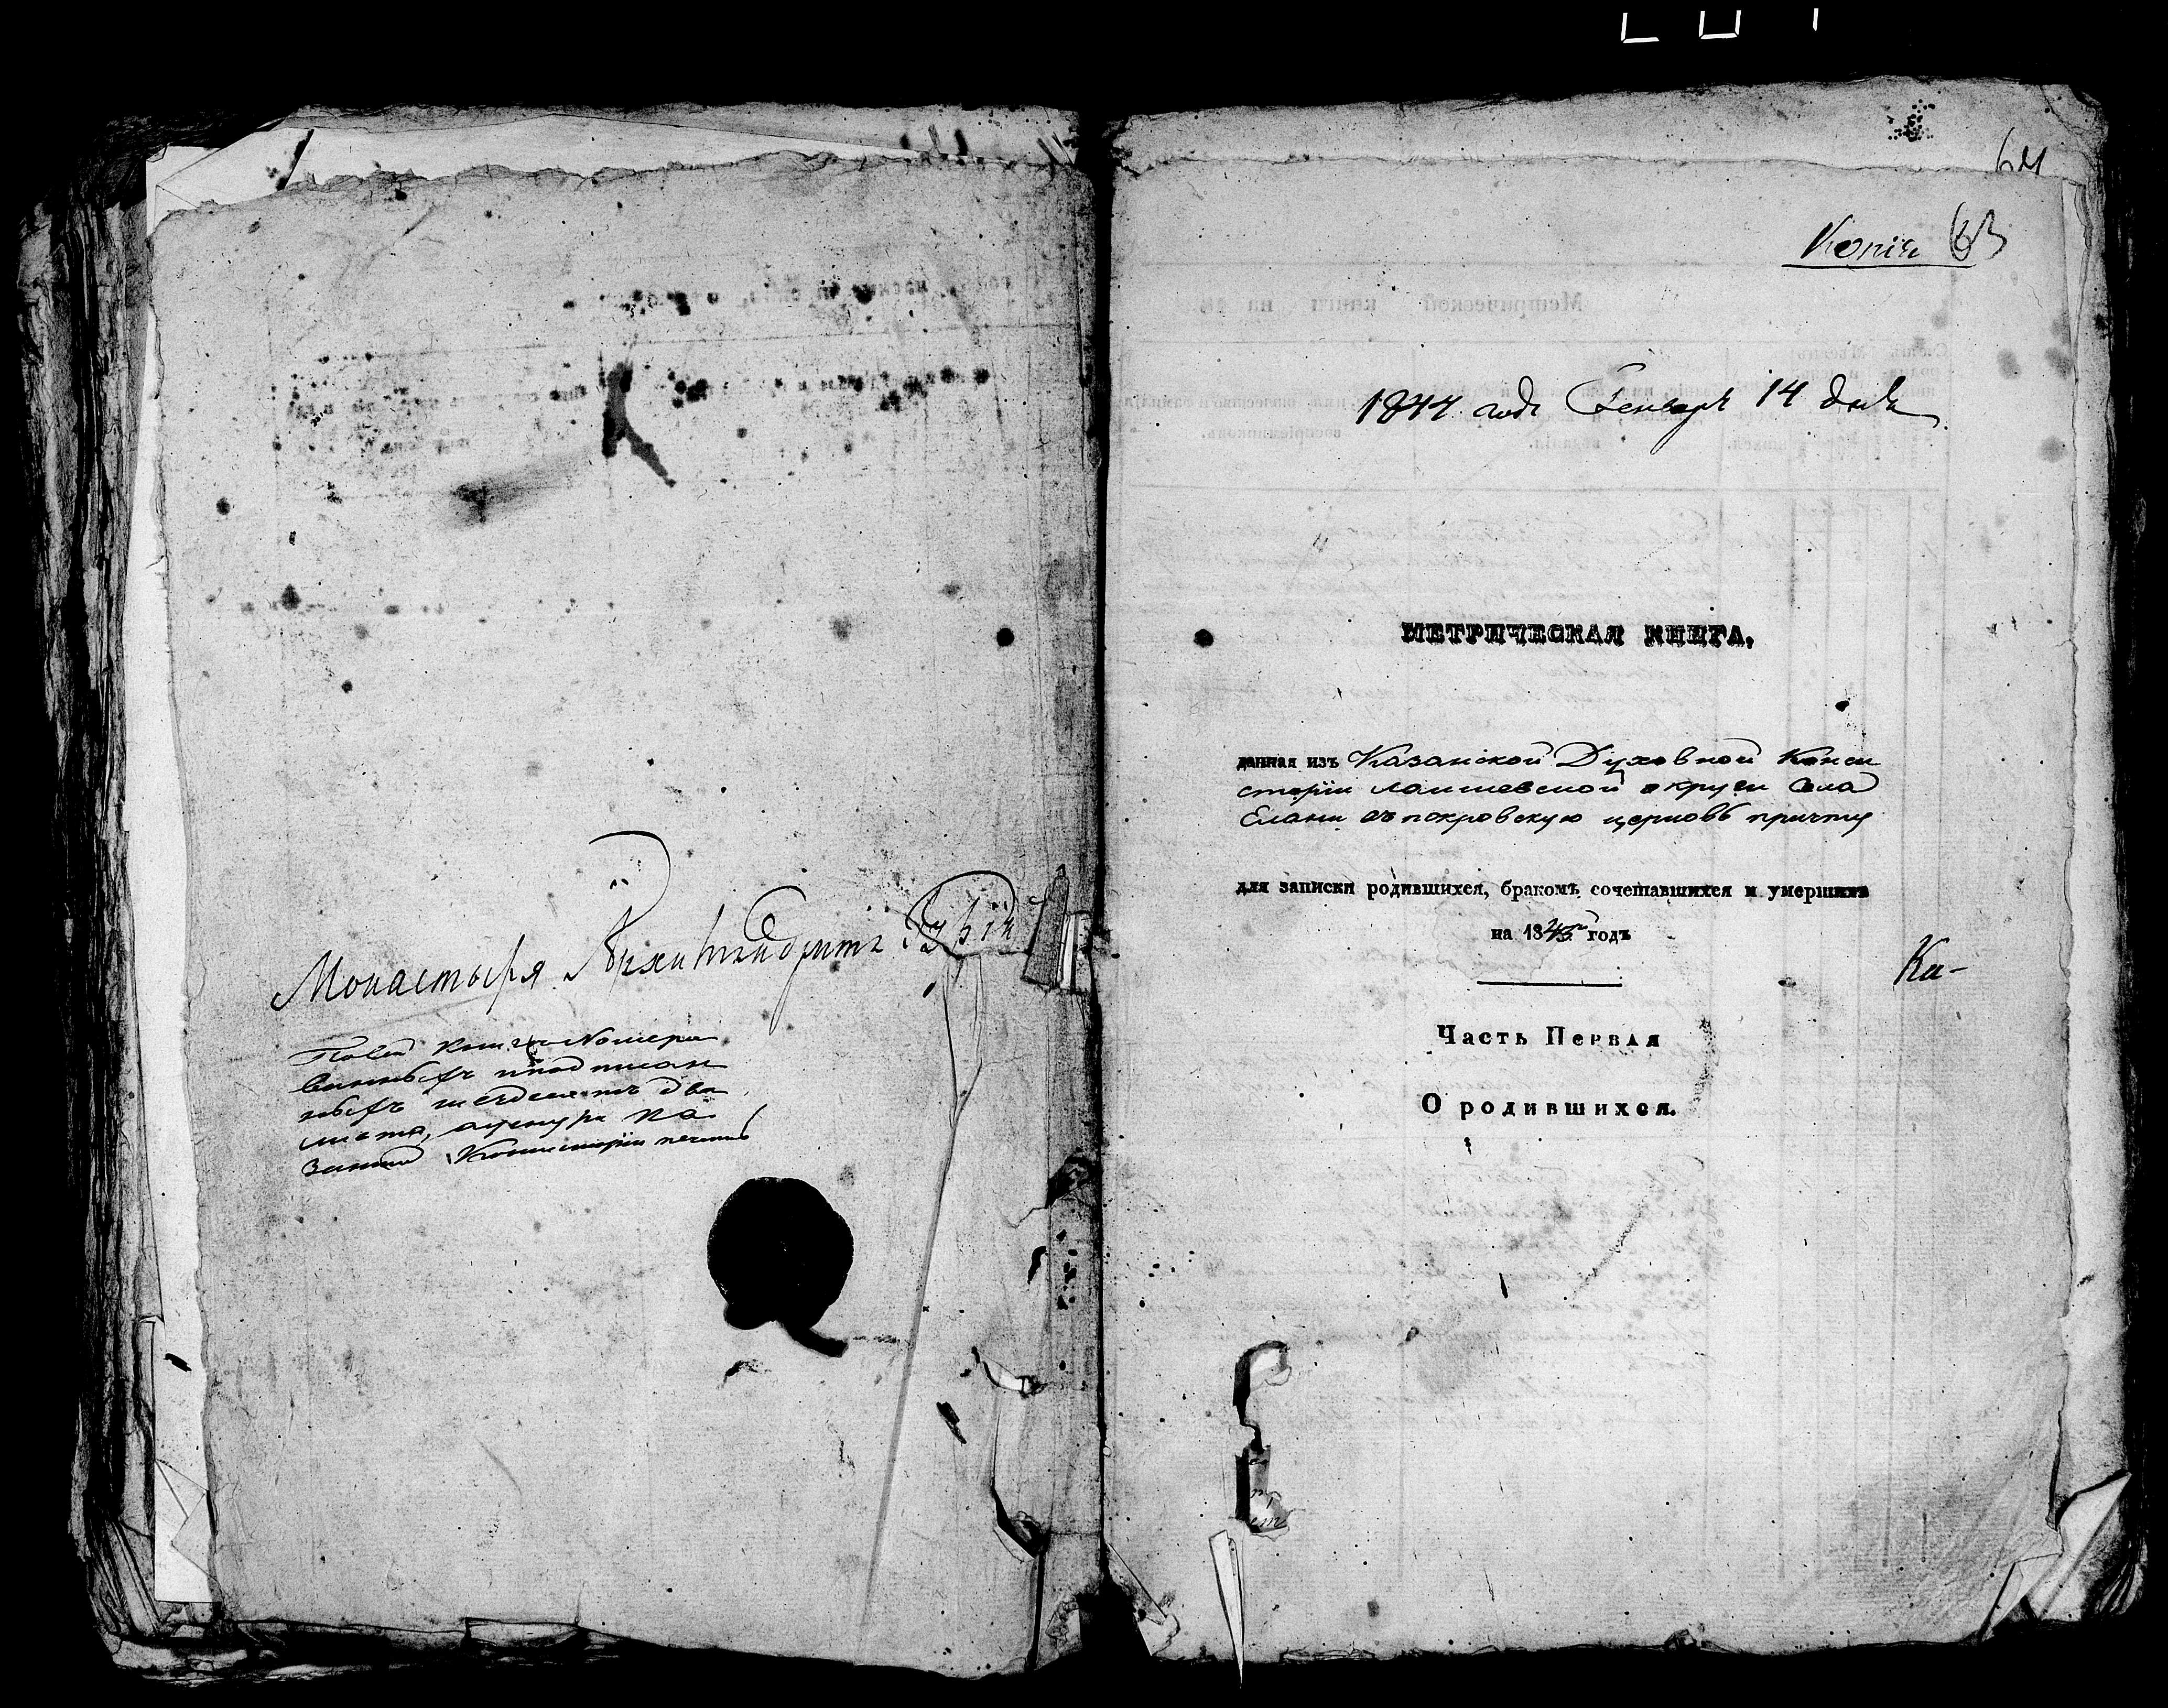 Монастыря Архимандритъ Гурій
По сей книги Номеро
ванныхъ и подписан
ныхъ шездесятъ два
листа, а шнуръ Ка
занской Консисторіи печать
64
Копія 63
1844 года Генваря 14 дня
МЕТРИЧЕСКАЯ КНИГА,
данная изъ Казанской Духовной Конси
сторіи Лаишевской округи села
Елани въ покровскую церковь причту
для записки родившихся, бракомъ сочетавшихся и умершихъ
на 1843й годъ
Ка-
Часть Первая
О родившихся.